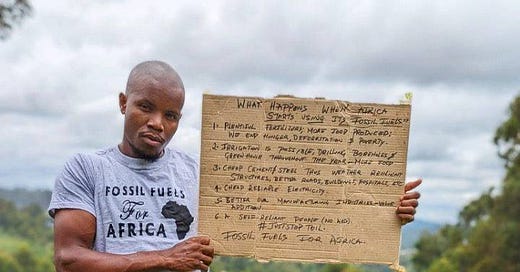 WHAT HAPPENS WHEN AFRICA
STARTS USING ITS "FOSSIL FUELS"
1. PLENTIFUL FERTILIZERS, MORE FOOD PRODUCED;
END HUNGER, & POVERTY.
2. IRRIGATION IS POSSIBLE, DRILLING BOREHOLES &
GREENHOUSE THROUGHOUT THE YEAR MORE FOOD
3. CHEAP CEMENT/STEEL THUS WEATHER RESILIENT
STRUCTURES, BETTER ROADS, BUILDINGS, HOSPITALS, ETC
4. CHEAP RELIABLE ELECTRICITY.
5. BETTER OUR MANUFACTURING INDUSTRIES - VALUE
ADDITION
6. A SELF-RELIANT PEOPLE (NO AID)
FOSSIL FUELS FOR AFRICA.
FOSSIL FUELS
For
AFRICA